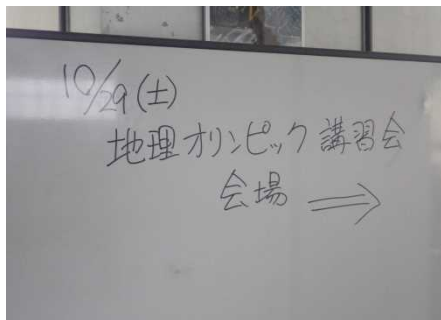 10/29(土)
地理オリンピック講習会
会場 ⇒